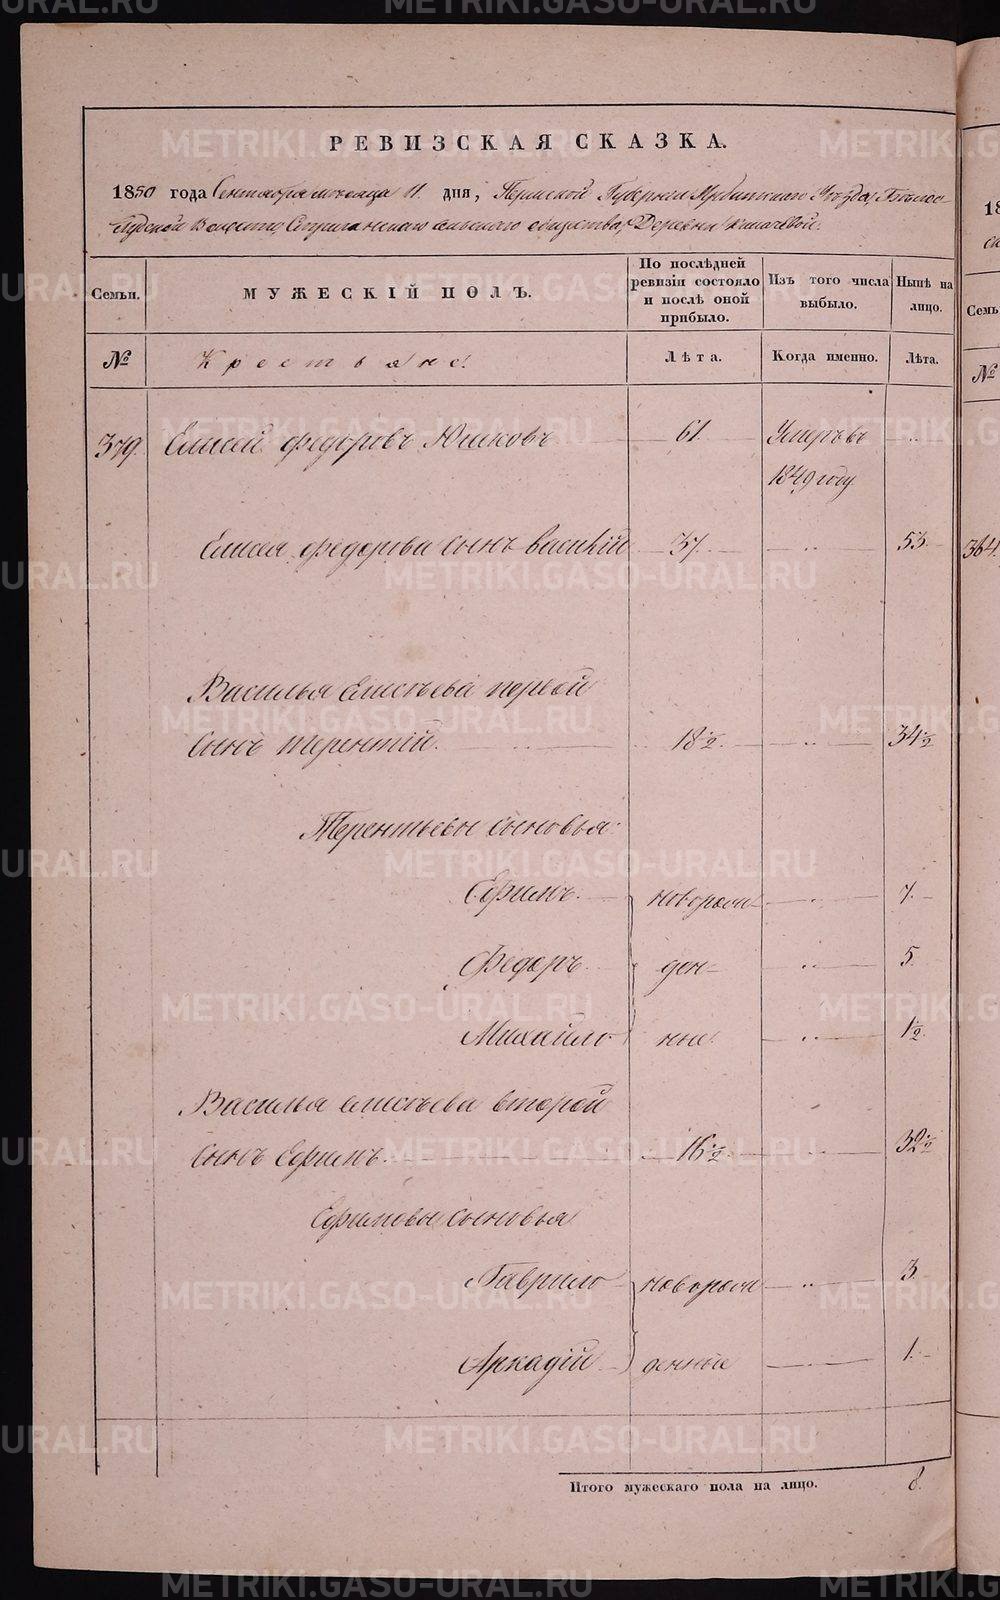 РЕВИЗСКАЯ СКАЗКА.
1850 года Сентября месяца 11 дня, Пермской Губернии Ирбитскаго Уезда, Белослудской Волости, сельскаго общества, Деревни
Семьи.
МУЖЕСКІЙ ПОЛЪ.
По послѣдней ревизіи состояло и послѣ оной прибыло.
Изъ того числа выбыло.
Нынѣ на лицо.
№
Крестьяне.
Лѣта.
Когда именно.
Лѣта.
379. Елисей Федоровъ Юшковъ 61. Умеръ въ ..
1849 году
Елисея Федорова сынъ Василій 37. .. 53.
Василья Елисѣева первой
сынъ Терентій. 18 1/2. .. 34 1/2
Терентьевы сыновья:
Ефимъ. новорож .. 7.
Федоръ ден= .. 5.
Михайло ные. .. 1 1/2
Василья Елисѣева второй
сынъ Ефимъ. 16 1/2. .. 32 1/2
Ефимовы сыновья
Гаврило новорож .. 3.
Аркадій денные 1.
Итого мужескаго пола на лицо. 8.
18
Семь
№
364.
METRIKI.GASO-URAL.RU